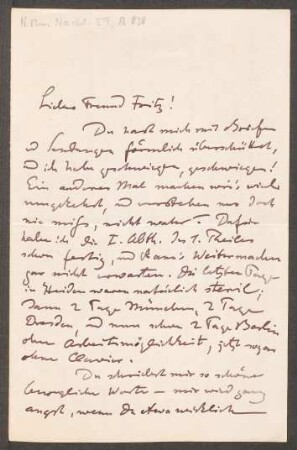 Lieber Freund Fritz!
Du hast mich mit Briefen
u Sendungen förmlich überschüttet,
und ich habe geschwiegen, geschwiegen!
Ein anderes Mal machen wir's wieder
umgekehrt, und verstehen uns doch
nie miss, nicht wahr? Dafür
habe ich die I. Abth. des 1. Theiles
schon fertig, und kann's Weitermachen
gar nicht erwarten. Die letzten Tage
in Heiden waren natürlich steril;
dann 2 Tage München, 2 Tage
Dresden, und nun schon 2 Tage Berlin
ohne Arbeitsmöglichkeit, jetzt sogar
ohne Clavier.
Du schreibst mir so schöne
bewegliche Worte – mir wird ganz
angst, wenn Du etwa wirklich